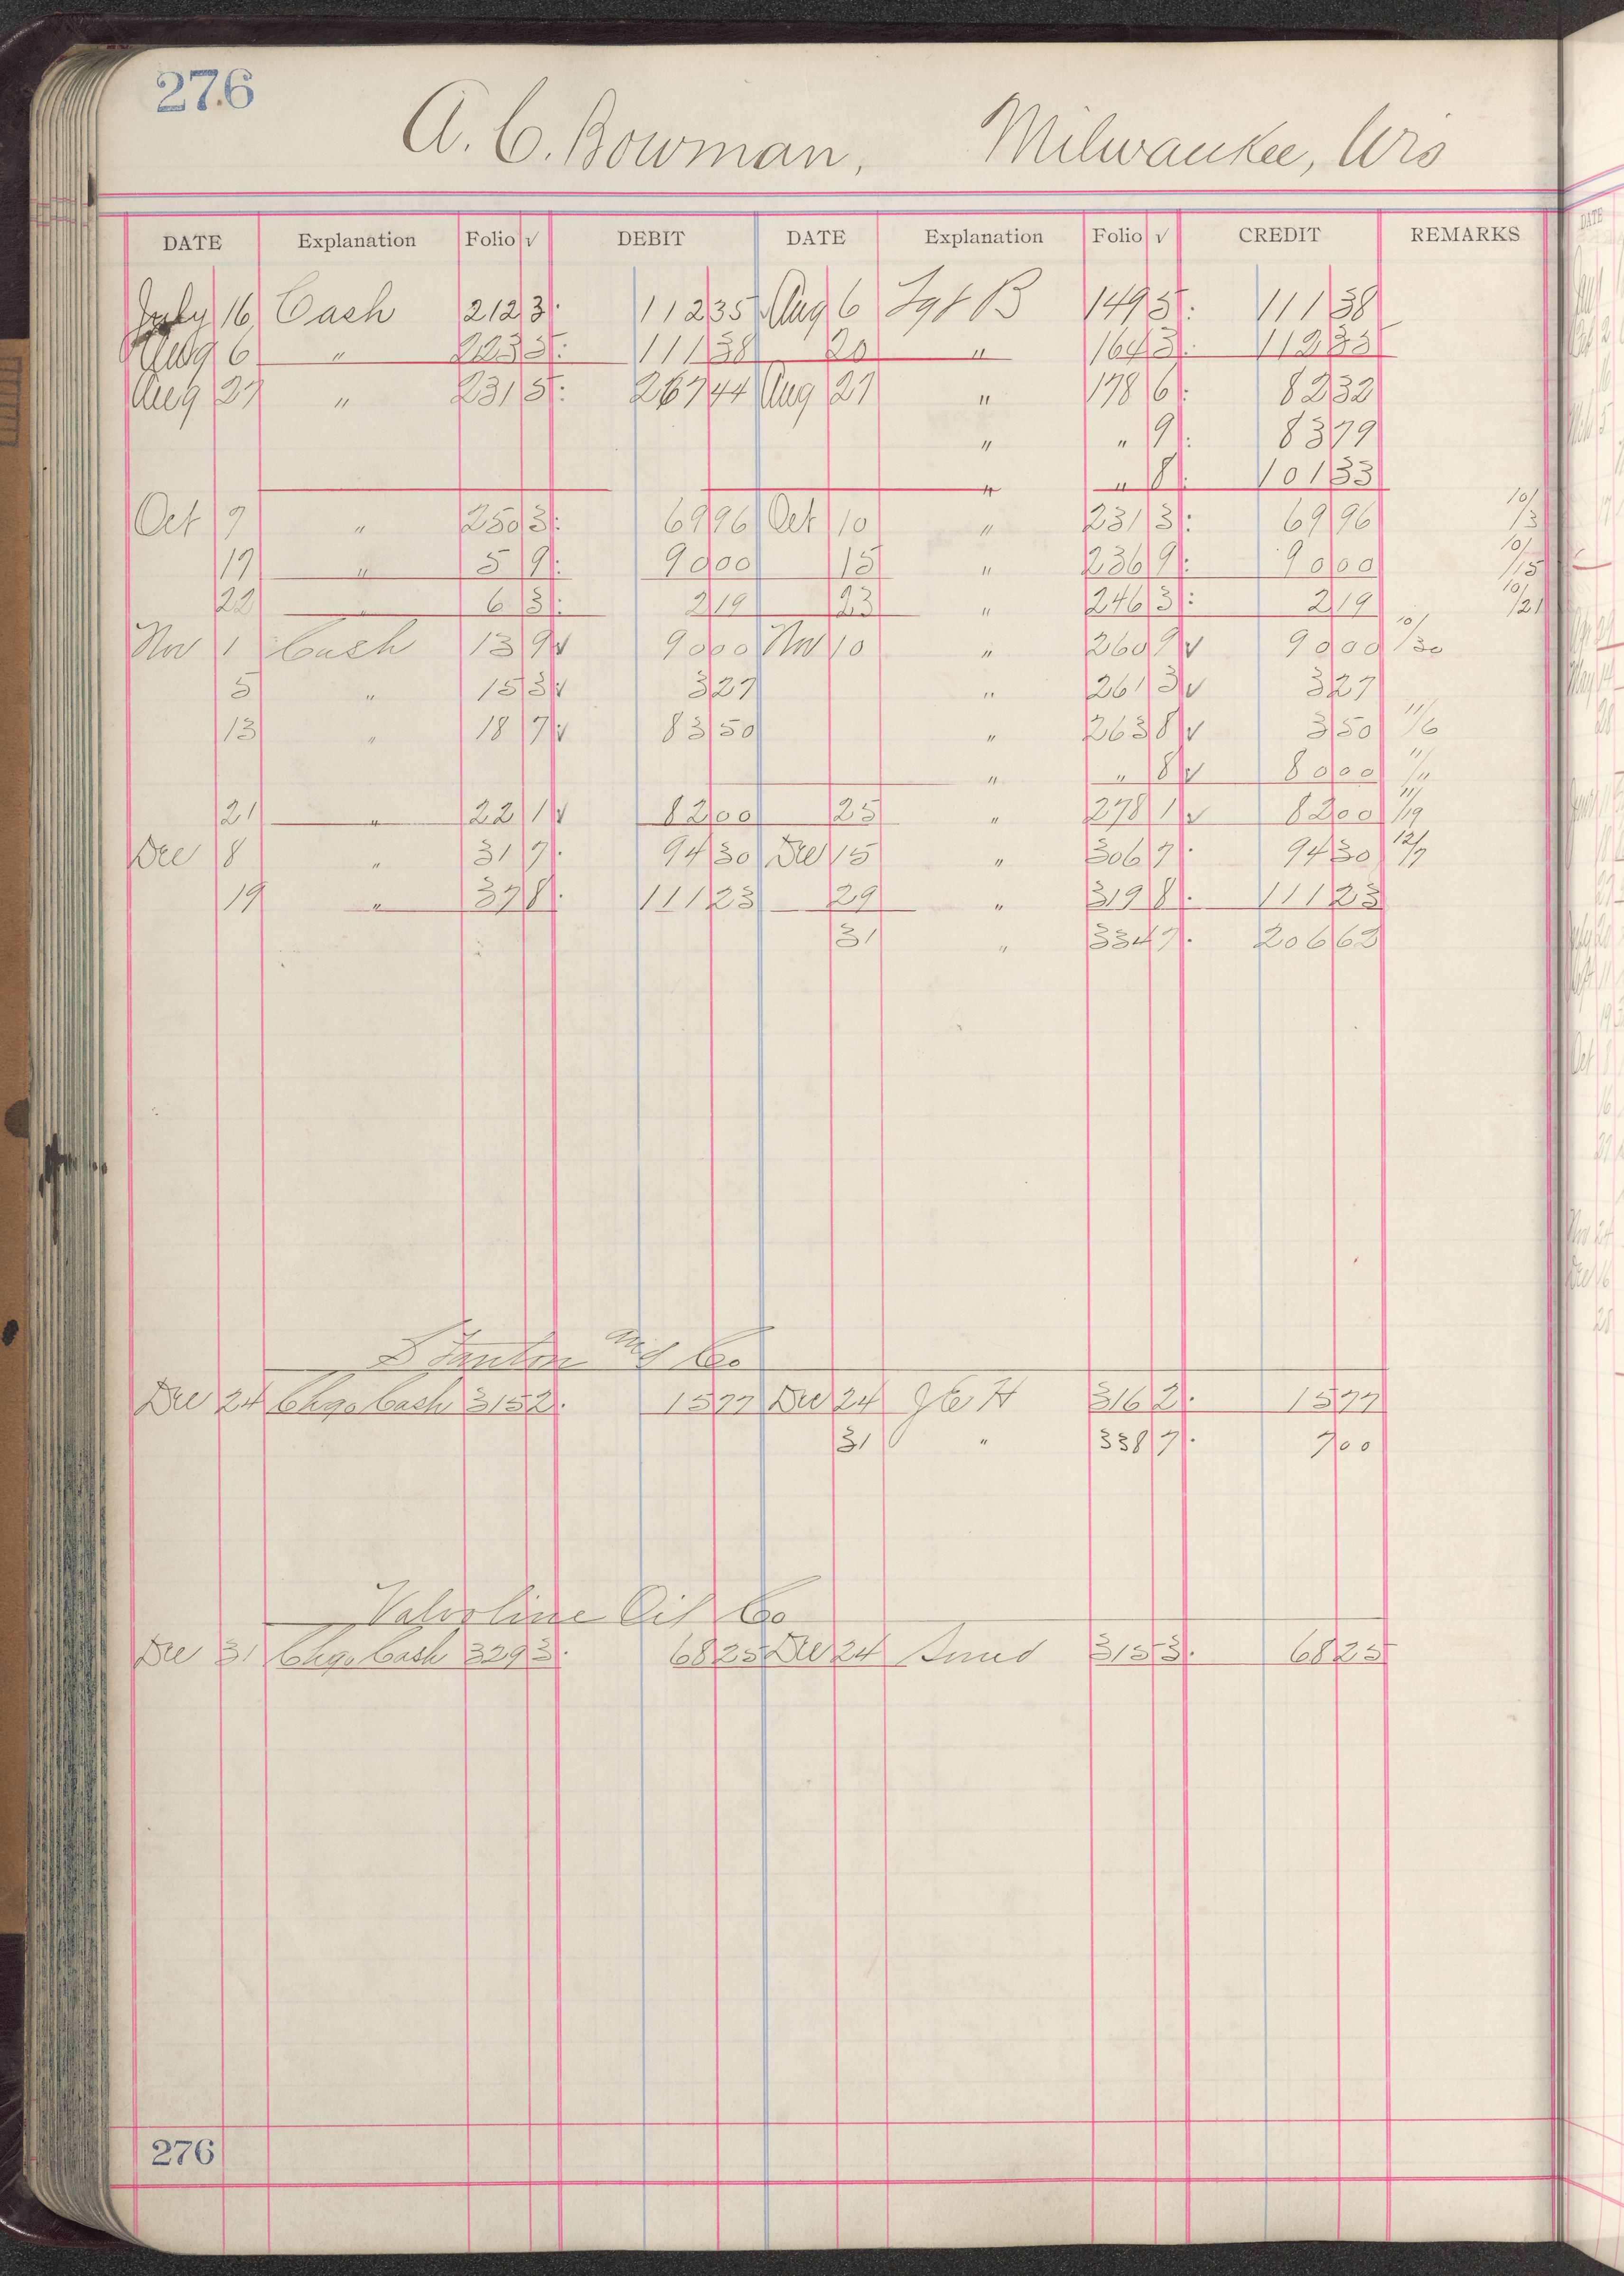 276
A. C. Bowman, Milwaukee, Wis
DATE Explanation Folio √ DEBIT DATE Explanation Folio √ CREDIT REMARKS
July 16 Cash 212 3: 112 35 Aug 6 Igt B 149 5: 111 38
Aug 6 " 223 5: 111 38 20 " 164 3: 112 35
Aug 27 " 231 5: 267 44 Aug 27 " 178 6: 82 32
" " 9: 83 79
" " 8: 101 33
Oct 7 " 250 3: 69 96 Oct 10 " 231 3: 69 96 10/3
17 " 5 9: 90 00 15 " 236 9: 90 00 10/15
22 " 6 3: 2 19 23 " 246 3: 2 19 10/21
Nov 1 Cash 13 9 √ 90 00 Nov 10 " 260 9 √ 90 00 10/30
5 " 15 3 √ 3 27 " 261 3 √ 3 27
13 " 18 7 √ 83 50 " 263 8 √ 3 50 11/6
" " 8 √ 80 00 11/11
21 " 22 1 √ 82 00 25 " 278 1 √ 82 00 11/19
Dec 8 " 31 7. 94 30 Dec 15 " 306 7. 94 30 12/7
19 " 37 8. 111 23 29 " 319 8. 111 23
31 " 334 7. 206 63
Stanton and Co
Dec 24 Chgo Cash 315 2. 15 77 Dec 24 J E H 316 2. 15 77
31 " 338 7. 7 00
Valvoline Oil Co
Dec 31 Chgo Cash 329 3. 68 25 Dec 24 315 3. 68 25
276